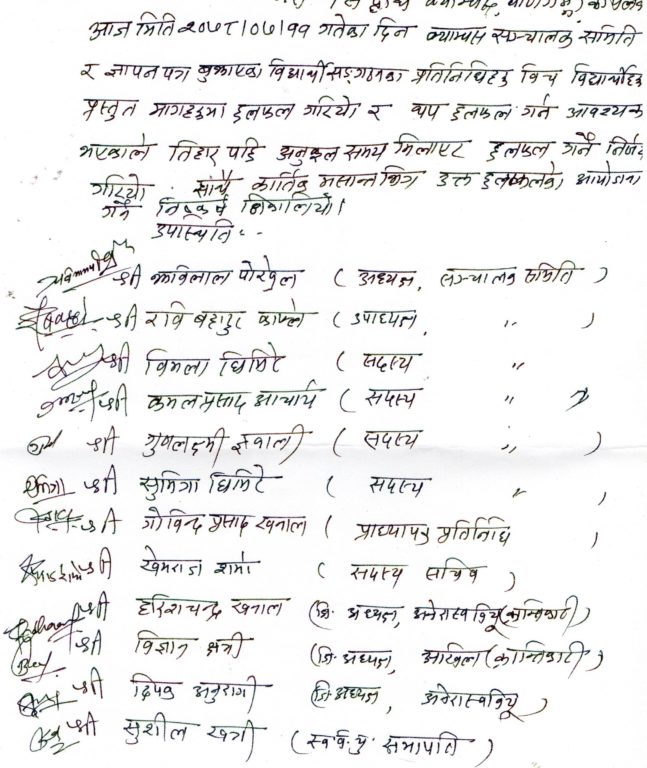 आज मिति २०७८।०७।११ गतेका दिन क्याम्पस सञ्चालक समिति
र ज्ञापन पत्र बुझाएका विद्यार्थी सङ्गठनका प्रतिनिधिहरु विच विद्यार्थीहरु
प्रस्तुत मागहरुमा छलफल गरियो र थप छलफल गर्न आवश्यक
भएकाले तिहार पछि अनुकूल समय मिलाएर छलफल गर्ने निर्णय
गरियो साथै कार्तिक मसान्त भित्र उक्त छलफलको आयोजना
गर्ने निष्कर्ष निकालियो।
उपास्थिति :-
श्री झविलाल पोखेल ( अध्यक्ष, सञ्चालक समिति )
श्री रवि बहादुर काफ्ले ( उपाध्यक्ष, " )
श्री विमला घिमिरे ( सदस्य "
श्री कमलप्रसाद आचार्य ( सदस्य " )
श्री ( सदस्य " )
सुमित्रा श्री सुमित्रा घिमिरे ( सदस्य " )
श्री गोविन्द प्रसाद खनाल ( प्राध्यापक प्रतिनिधि )
श्री खेमराज शर्मा ( सदस्य सचिव )
श्री हरिशचन्द्र खनाल (जि. अध्यक्ष, अनेरास्ववियू (क्रान्तिकारी)
श्री विज्ञान क्षत्री (जि. अध्यक्ष, अखिल (क्रान्तिकारी)
श्री दिपक अनुरागी (जि.अध्यक्ष, अनेरास्ववियू)
श्री सुशील खत्री (स्व.वि.यु. सभापति )